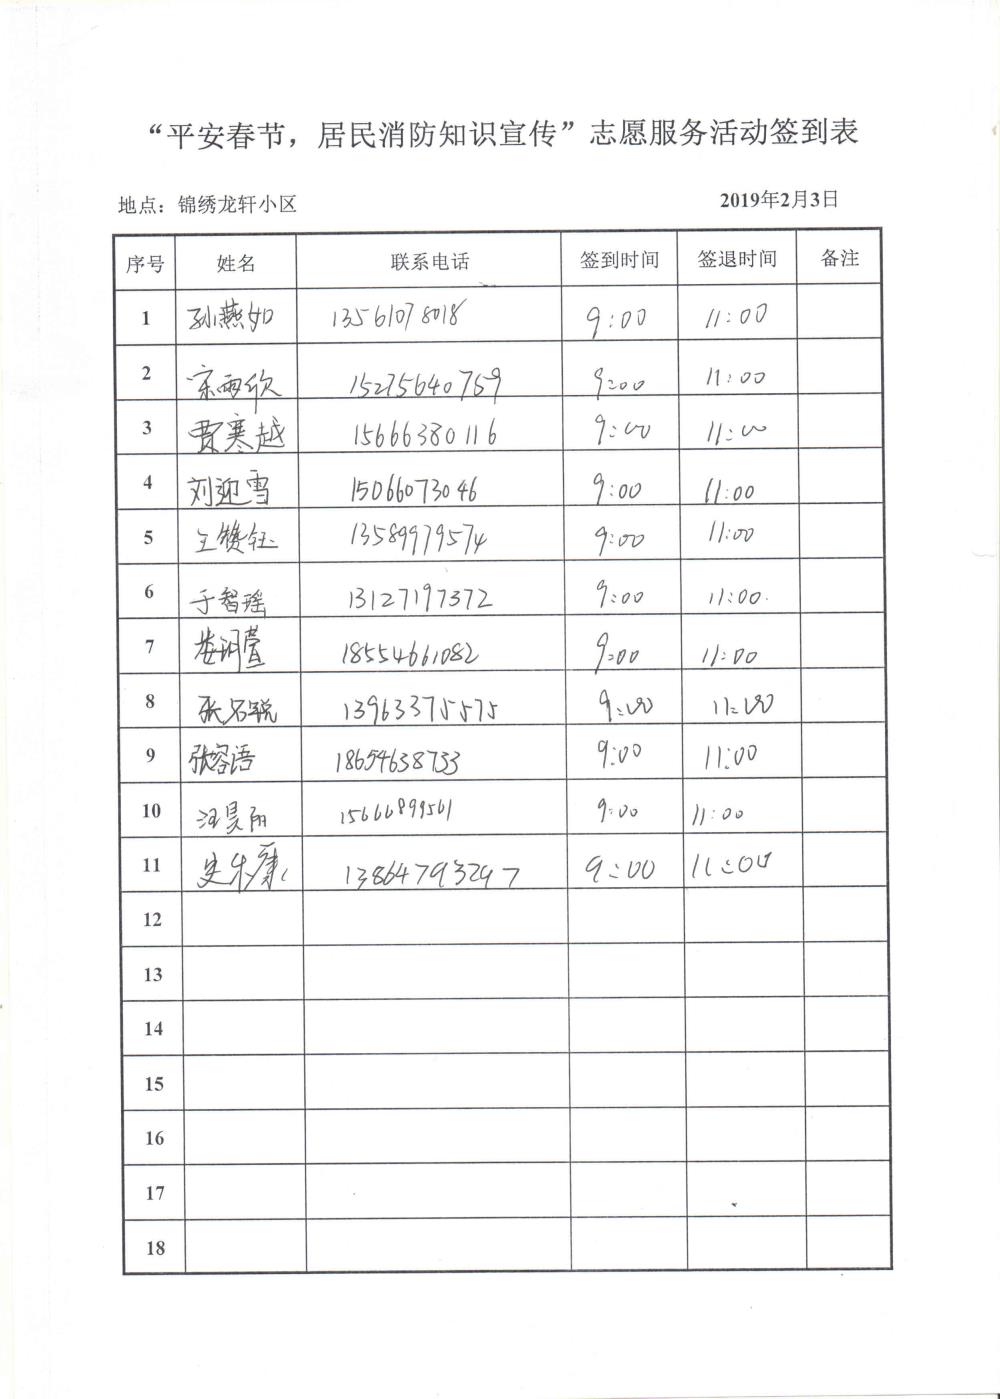 “平安春节，居民消防知识宣传”志愿服务活动签到表
地点：锦绣龙轩小区 2019年2月3日
序号 姓名 联系电话 签到时间 签退时间 备注
1 孙燕如 13561078018 9:00 11:00
2 宋雨欣 15275640759 9:00 11:00
3 贾寒越 15666380116 9:00 11:00
4 刘迎雪 15066073046 9:00 11:00
5 王赞钰 13589979574 9:00 11:00
6 于智瑶 13127197372 9:00 11:00
7 娄玥萱 18554661082 9:00 11:00
8 张名锐 13963375575 9:00 11:00
9 张容语 18654638733 9:00 11:00
10 汪昊雨 15666899561 9:00 11:00
11 史乐康 13864793297 9:00 11:00
12
13
14
15
16
17
18